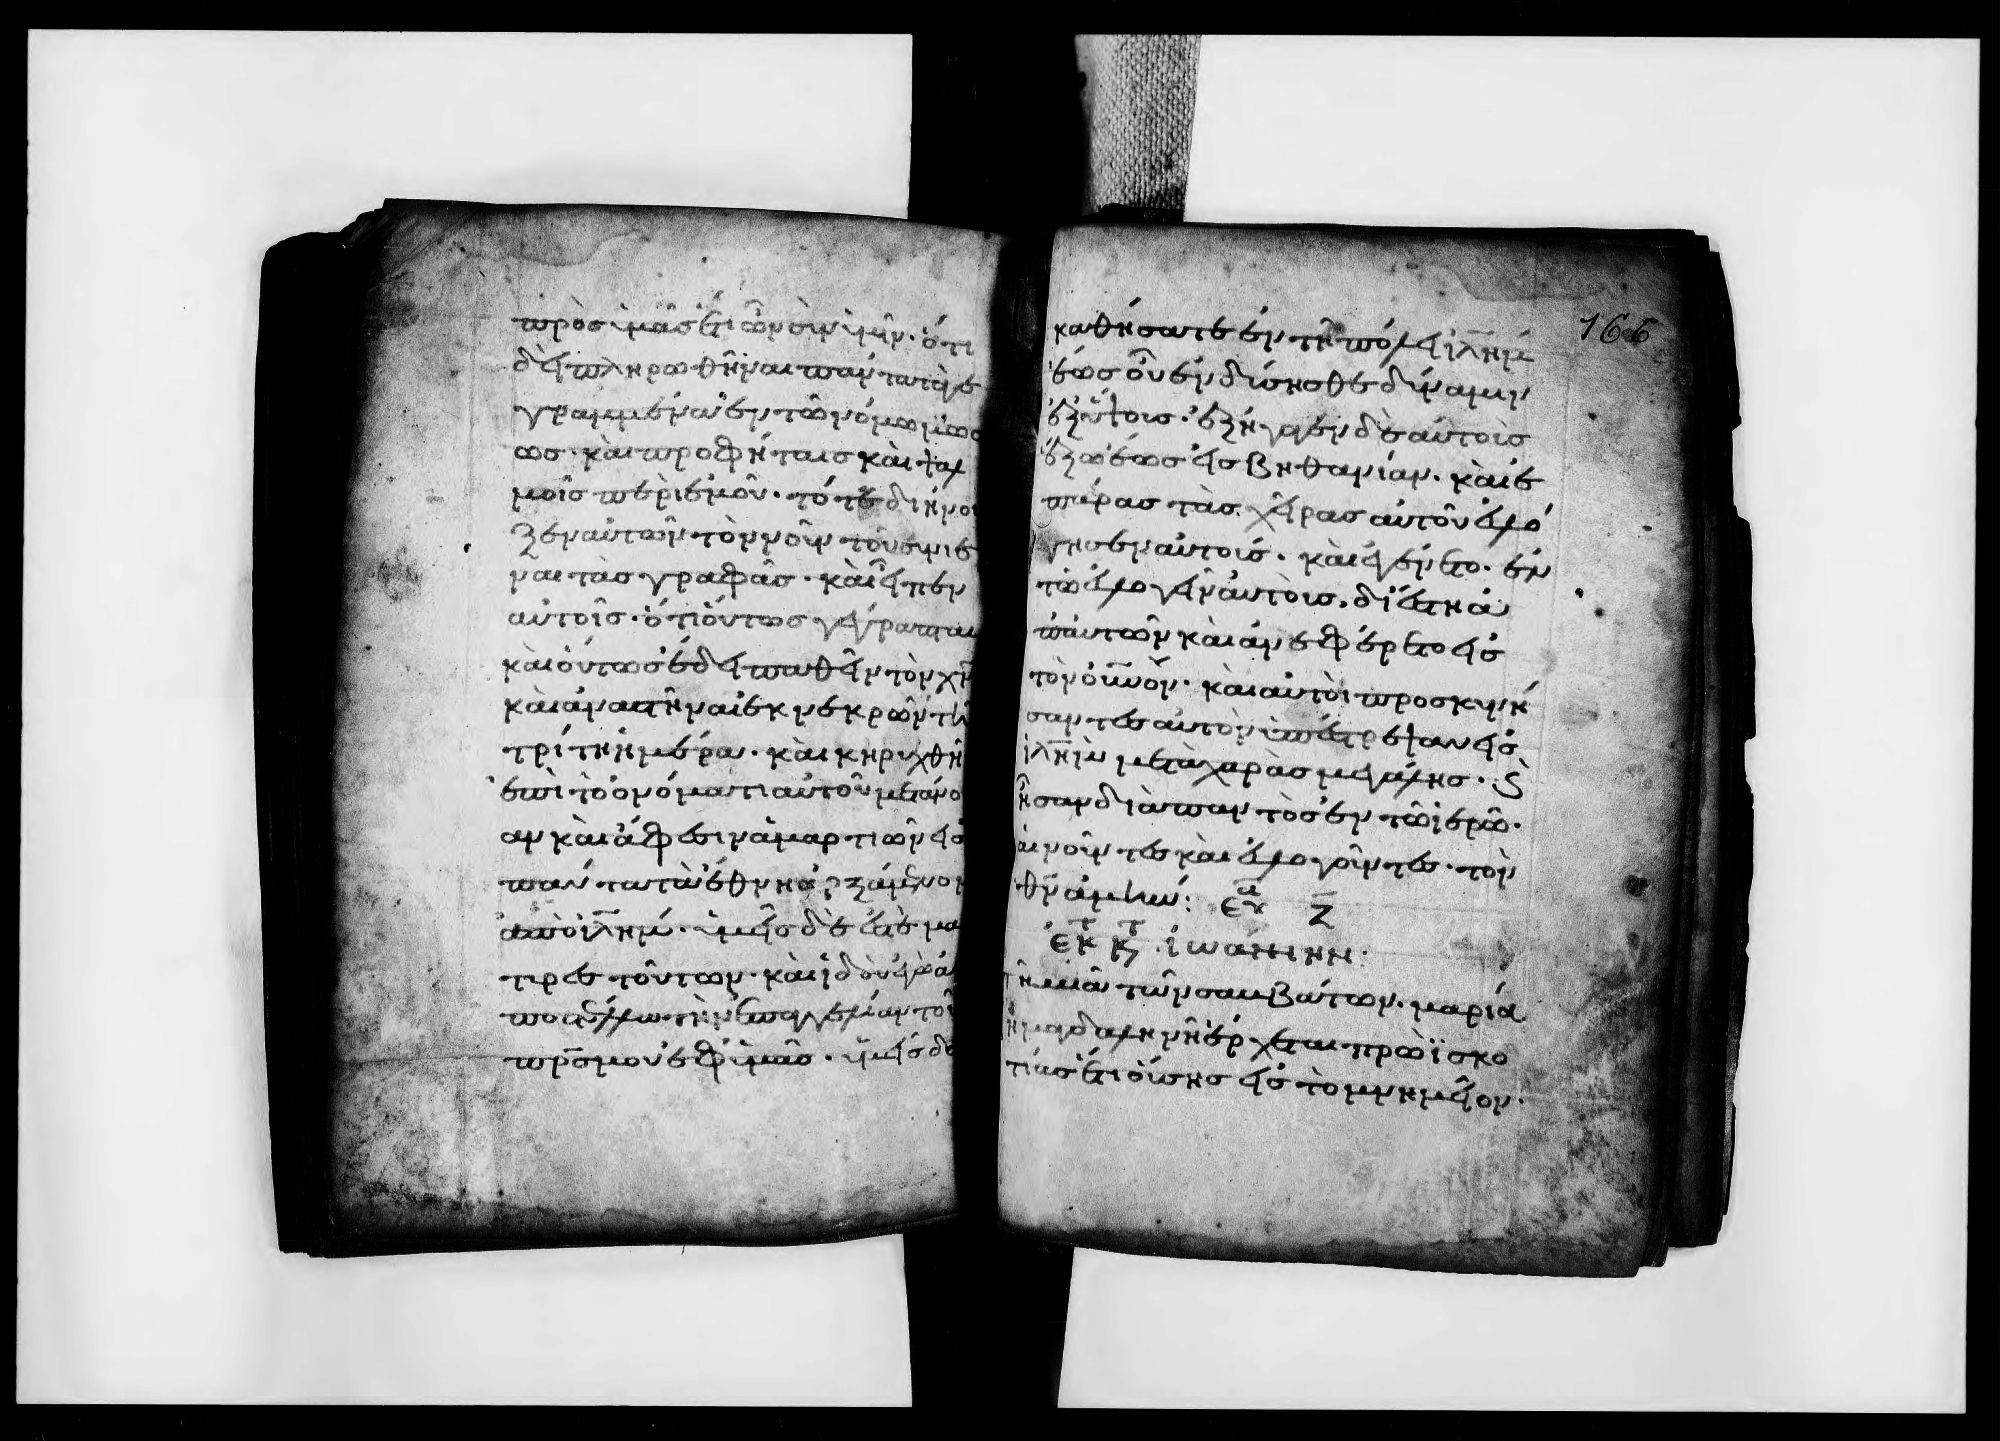 πρὸσ ὑμᾶσ ἔτι ὢν σὺν ὑμῖν· ὅτι
δεῖ πληρωθῆναι πάντα τὰ γε
γραμμένα ἐν τῶ νόμω μωσ
ωσ· καὶ προφήταισ καὶ ψαλ
μοῖσ περὶ ἐμοῦ· τότε διήνοι
ξεν αὐτῶν τὸν νοῦν τοῦ συνιέ
ναι τὰσ γραφάσ· καὶ εἶπεν
αὐτοῖσ· ὅτι ὄντωσ γέγραπται
καὶ ὄντωσ ἔδει παθεῖν τὸν χν
καὶ ἀναστῆναι ἐκ νεκρῶν τῆ
τρίτη ἡμέρα· καὶ κηρυχθῆ
ἐπὶ τὸ ὀνόματι αὐτοῦ μετάνοι
αν καὶ ἄφεσιν ἁμαρτιῶν εἰσ
πάντα τὰ ἔθνη ἀρξάμενον
ἀπὸ ἰλημ· ὑμεῖσ δὲ ἐστὲ μα
τυρεσ τούτων· καὶ ἰδοὺ ἐγὼ ἀ
ποστέλλω τὴν ἐπαγγελίαν τοῦ
πρσ μου ἐφ ὑμᾶσ· ὑμεῖσ δὲ
166
καθήσατε ἐν τῆ πόλει ἰλημ
ἕωσ οὗ ἐνδύσησθε δύναμιν
ἐξ ὕψουσ· ἐξήγαγεν δὲ αὐτοὺσ
ἔξω ἕωσ εἰσ βηθανίαν· καὶ ἐ
πάρασ τὰσ χεῖρασ αὐτοῦ εὐλό
γησεν αὐτοισ· καὶ ἐγένετο· ἐν
τῶ εὐλογεῖν αὐτοὺσ· διέστη ἀ
π αὐτῶν καὶ ἀνεφέρετο εἰσ
τὸν οὐνον· καὶ αὐτοὶ προσκυνή
σαντεσ αὐτὸν ὑπέστρεψαν εἰσ
ἰλημ μετὰ χαρᾶσ μεγάλησ· ϗ
ἦσαν διὰ παντὸσ ἐν τῶ ἱερῶ·
αἰνοῦντεσ καὶ εὐλογοῦντεσ· τὸν
θν ἀμήν: ευα ζ
ἐκ τ κτ ἰωάννην·
τῆ μιᾶ τῶν σαμβάτων· μαρία
ἡ μαγδαληνὴ ἔρχεται πρωῒ σκο
τίασ ἔτι οὔσησ εἰσ τὸ μνημεῖον·